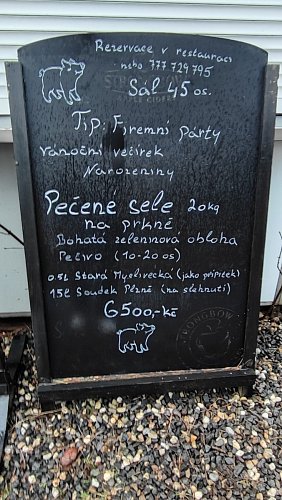 Rezervace v restauraci
nebo 777 729 795
STRONGBOW
APPLE CIDER
Sál 45 os.
Tip: Firemní párty
Vánoční večírek
Narozeniny
Pečené sele 20kg
na prkně
Bohatá zeleninová obloha
Pečivo (10-20 os)
0.5l Stará Myslivecká (jako přípitek)
15l Soudek Plzně (na slehnutí)
6500,-Kč
STRONGBOW